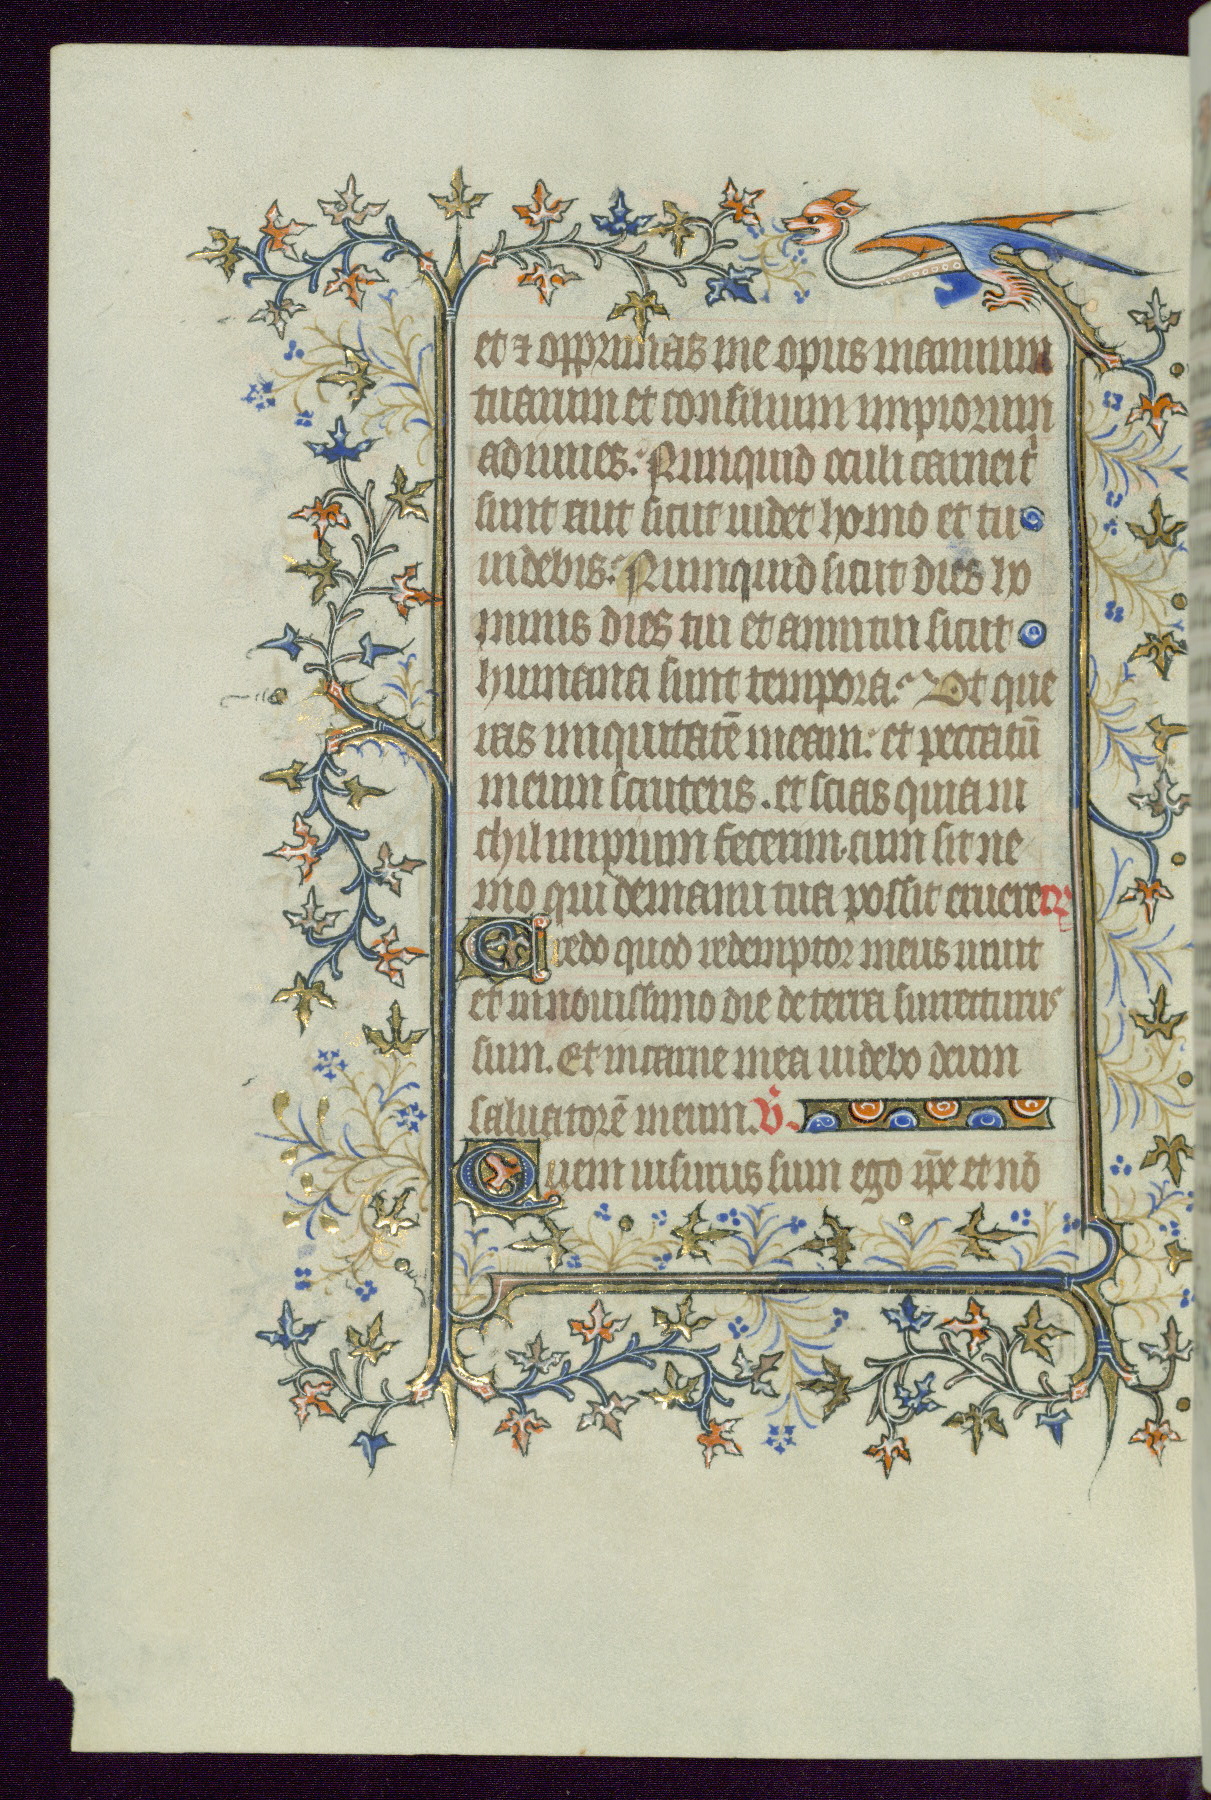 et ⁊ opprimas me opus manuum
tuarum et consilium impiorum
adiuues. Nunquid oculi carnei t̉
sunt aut sicut uidet homo et tu
uidebis. Nunquid sicut dies ho
minis dies tui et anni tui sicut
humana sunt tempora. Vt que
ras iniquitatē meam: et peccatū
meum scruteris. et scias quia ni
chil impium fecerim. cum sit ne
mo qui de manu tua possit eruere R̷
Credo quod redemptor meus uiuit
et in nouissimo die de terra surrecturus
sum. Et in carne mea uidebo deum
saluatorē meum. V̄.
Quem uisurus sum ego ip̄e et nō